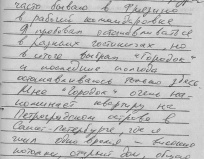 часто бываю в Фрязино
в рабочей командировке
Я пробовал останавливаться
в разных гостиницах, но
в итоге выбрал "Городок"
и последние полгода
останавливаюсь только здесь.
"Городок" очень на-
поминает квартиру на
Петроградском острове в
Санкт-Петербурге, где я
жил одно время